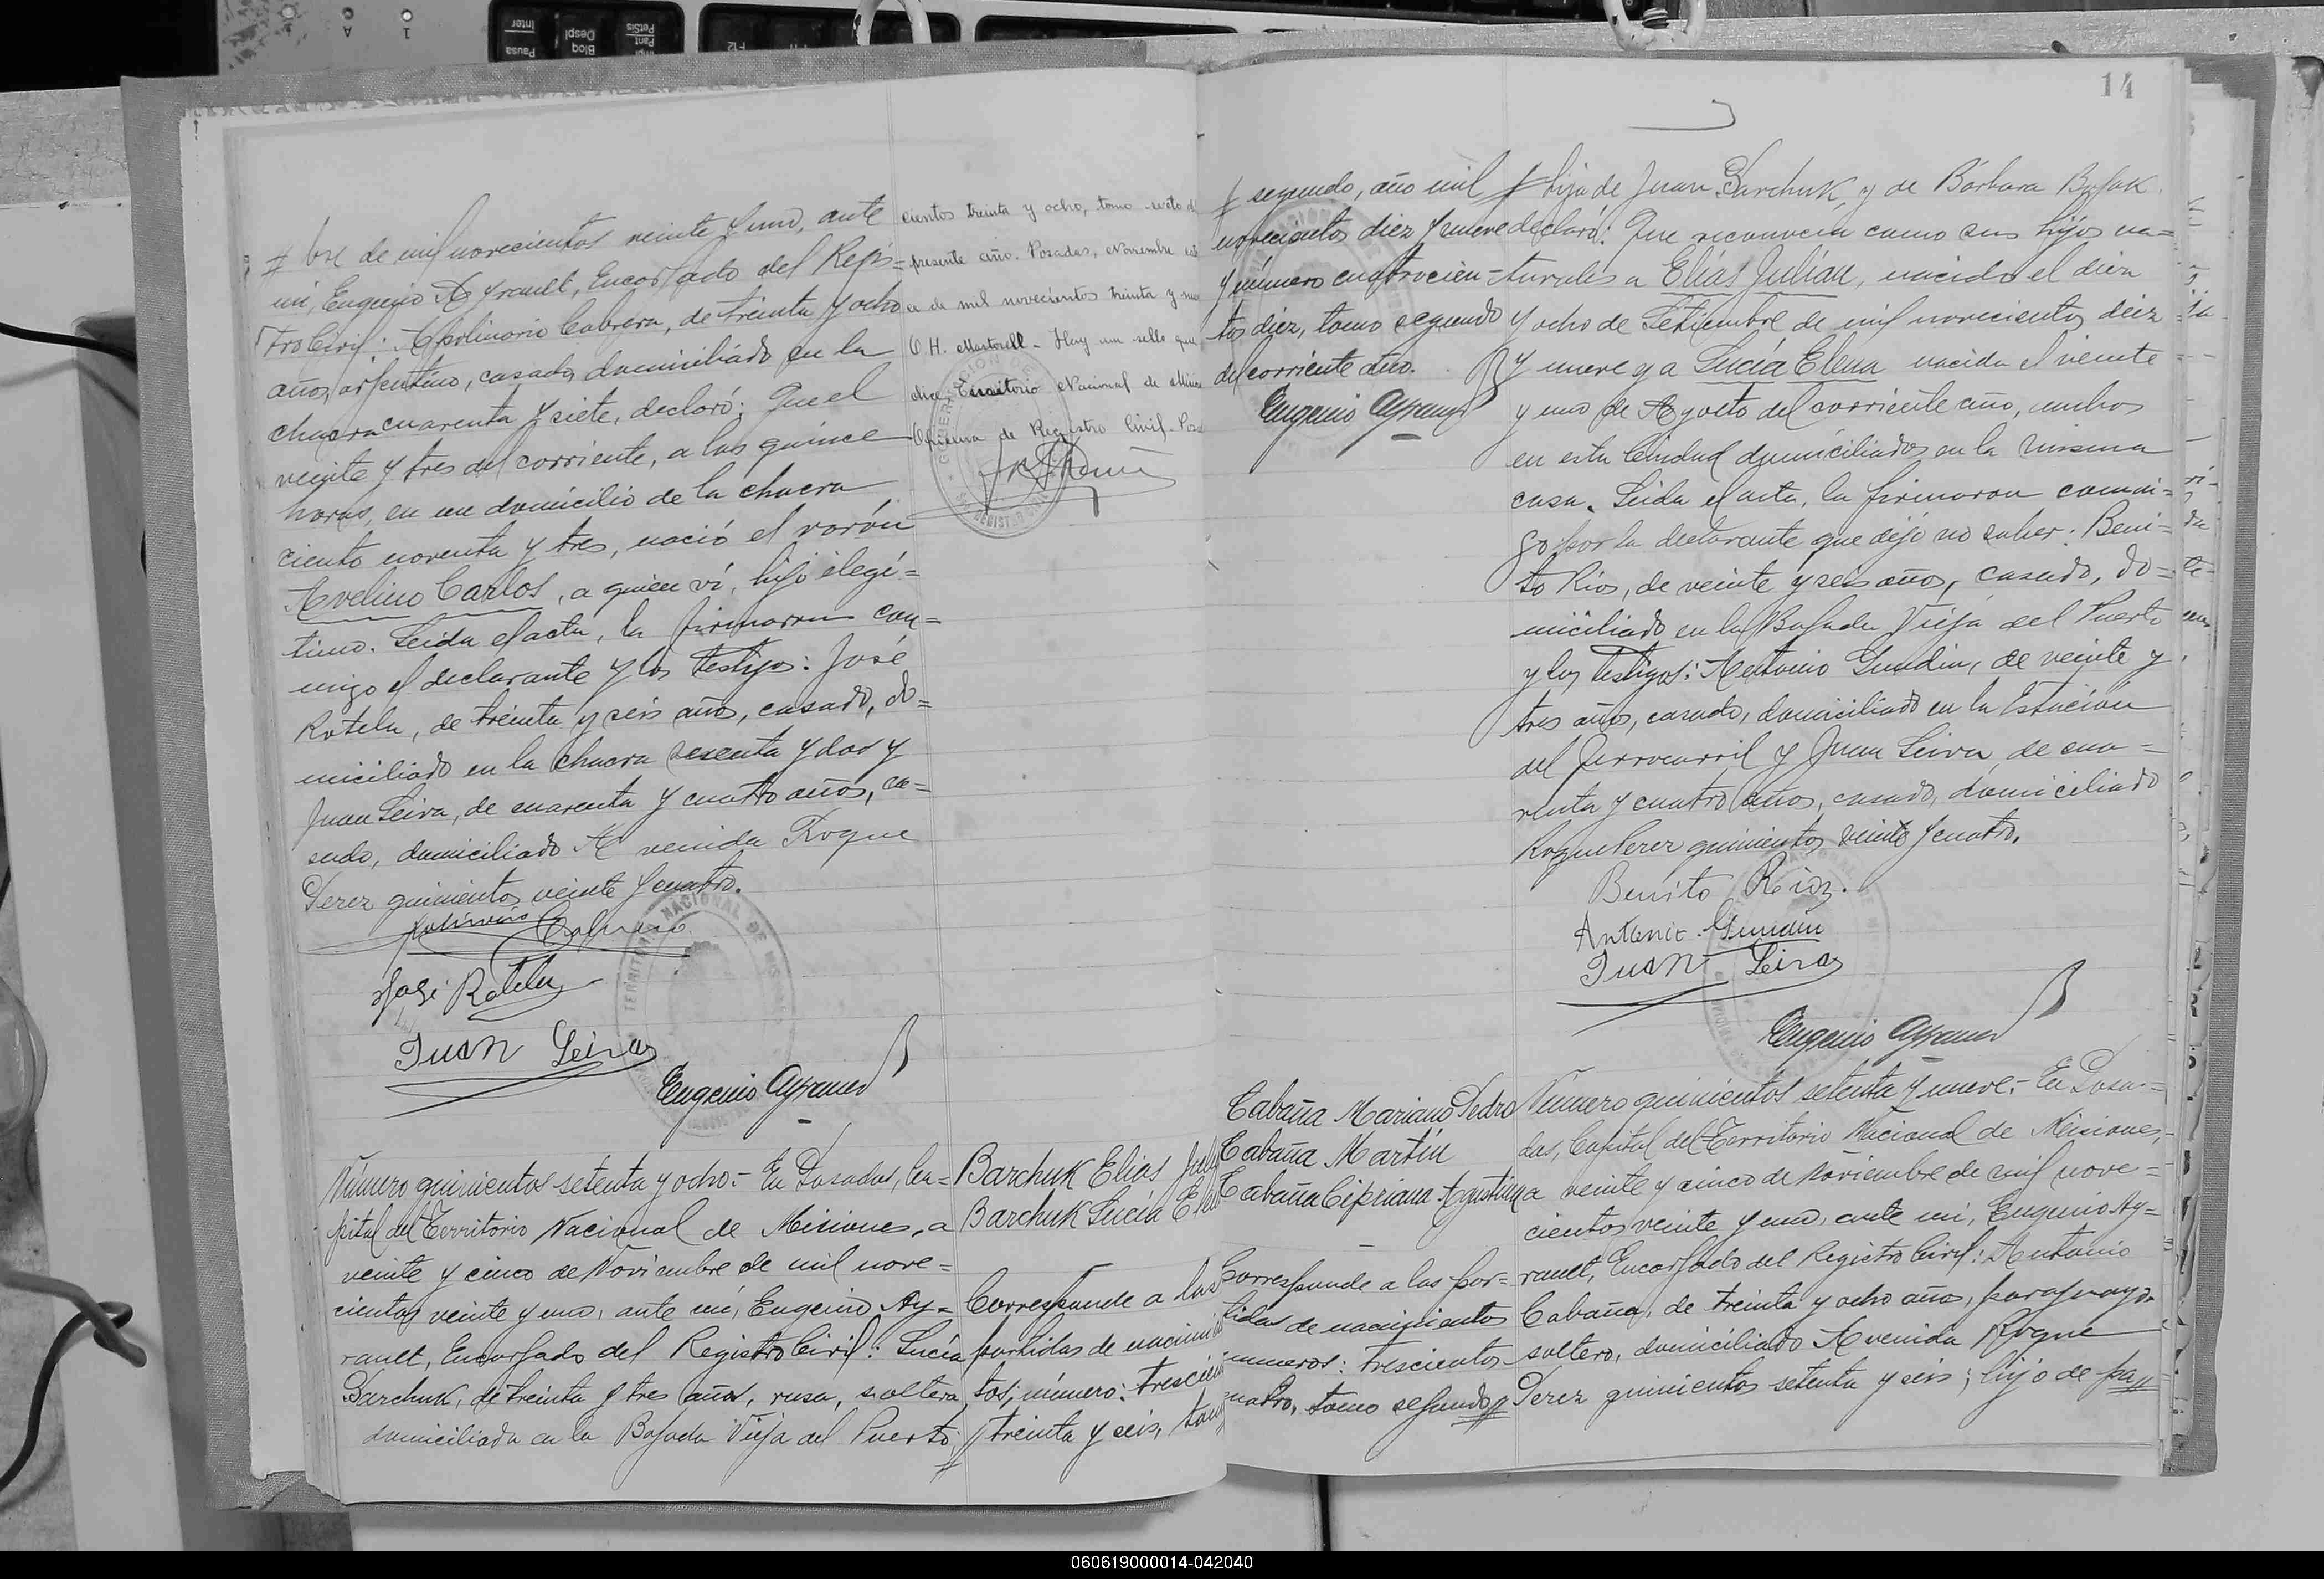 bre de mil novecientos veinte y uno, ante
mi, Eugenio Ayrault, Encargado del Regis=
tro Civil: Apolinario Cabrera, de treinta y ocho
años, argentino, casado, domiciliado en la
chacra cuarenta y siete, declaró: Que el
veinte y tres del corriente, a las quince
horas, en un domicilio de la chacra
ciento noventa y tres, nació el varón
Avelino Carlos, a quien ví, hijo ilegí=
timo. Leida el acta, la firmaron con=
migo el declarante y los testigos: José
Rotela, de treinta y seis años, casado, do=
miciliado en la chacra sesenta y dos y
Juan Leiva, de cuarenta y cuatro años, ca=
sado, domiciliado Avenida Roque
Perez quinientos veinte y cuatro.
Apolinario Cabrera
José Rotela
Juan Leiva
Eugenio Ayrault
cientos treinta y ocho, tomo sexto d
presente año. Posadas, Noviembre
a de mil novecientos treinta y nu
O. H. Martorell - Hay un sello que
dice, Territorio Nacional de Misi
Oficina de Registro Civil - Posa
Número quinientos setenta y ocho:- En Posadas, Ca=
pital del Territorio Nacional de Misiones, a
veinte y cinco de Noviembre de mil nove=
cientos veinte y uno, ante mi, Eugenio Ay=
rault, Encargado del Registro Civil: Lucía
Barchuk, de treinta y tres años, rusa, soltera,
domiciliada en la Bajada Vieja del Puerto,
Barchuk Elias Juli
Barchuk Lucía Ele
Corresponde a las
partidas de nacimi
tos; número: trescien
treinta y seis, tomo
14
segundo, año mil
novecientos diez y nueve
y número cuatrocien=
tos diez, tomo segundo
del corriente año.
Eugenio Ayrault
hija de Juan Barchuk, y de Bárbara
declaró: Que reconocia como sus hijos na=
turales a Elías Julián, nacido el diez
y ocho de Setiembre de mil novecientos diez
y nueve y a Lucía Elena nacida el veinte
y uno de Agosto del corriente año, ambos
en esta Ciudad domiciliados en la misma
casa. Leida el acta, la firmaron conmi=
go por la declarante que dijo no saber: Beni=
to Rios, de veinte y seis años, casado, do=
miciliado en la Bajada Vieja del Puerto
y los testigos: Antonio Gundin, de veinte y
tres años, casado, domiciliado en la Estación
del Ferrocarril y Juan Leiva, de cua=
renta y cuatro años, casado, domiciliado
Roque Perez quinientos veinte y cuatro.
Benito Rios.
Antonio Gundin
Juan Leiva
Eugenio Ayrault
Cabaña Mariano Pedro
Cabaña Martín
Cabaña Cipriana Agustina
Corresponde a las par=
tidas de nacimientos
números: trescientos
cuatro, tomo segundo
Número quinientos setenta y nueve.- En Posa=
das, Capital del Territorio Nacional de Misiones,
a veinte y cinco de Noviembre de mil nove=
cientos veinte y uno, ante mi, Eugenio Ay=
rault, Encargado del Registro Civil: Antonio
Cabaña, de treinta y ocho años, paraguayo,
soltero, domiciliado Avenida Roque
Perez quinientos setenta y seis; hijo de pa
060619000014-042040